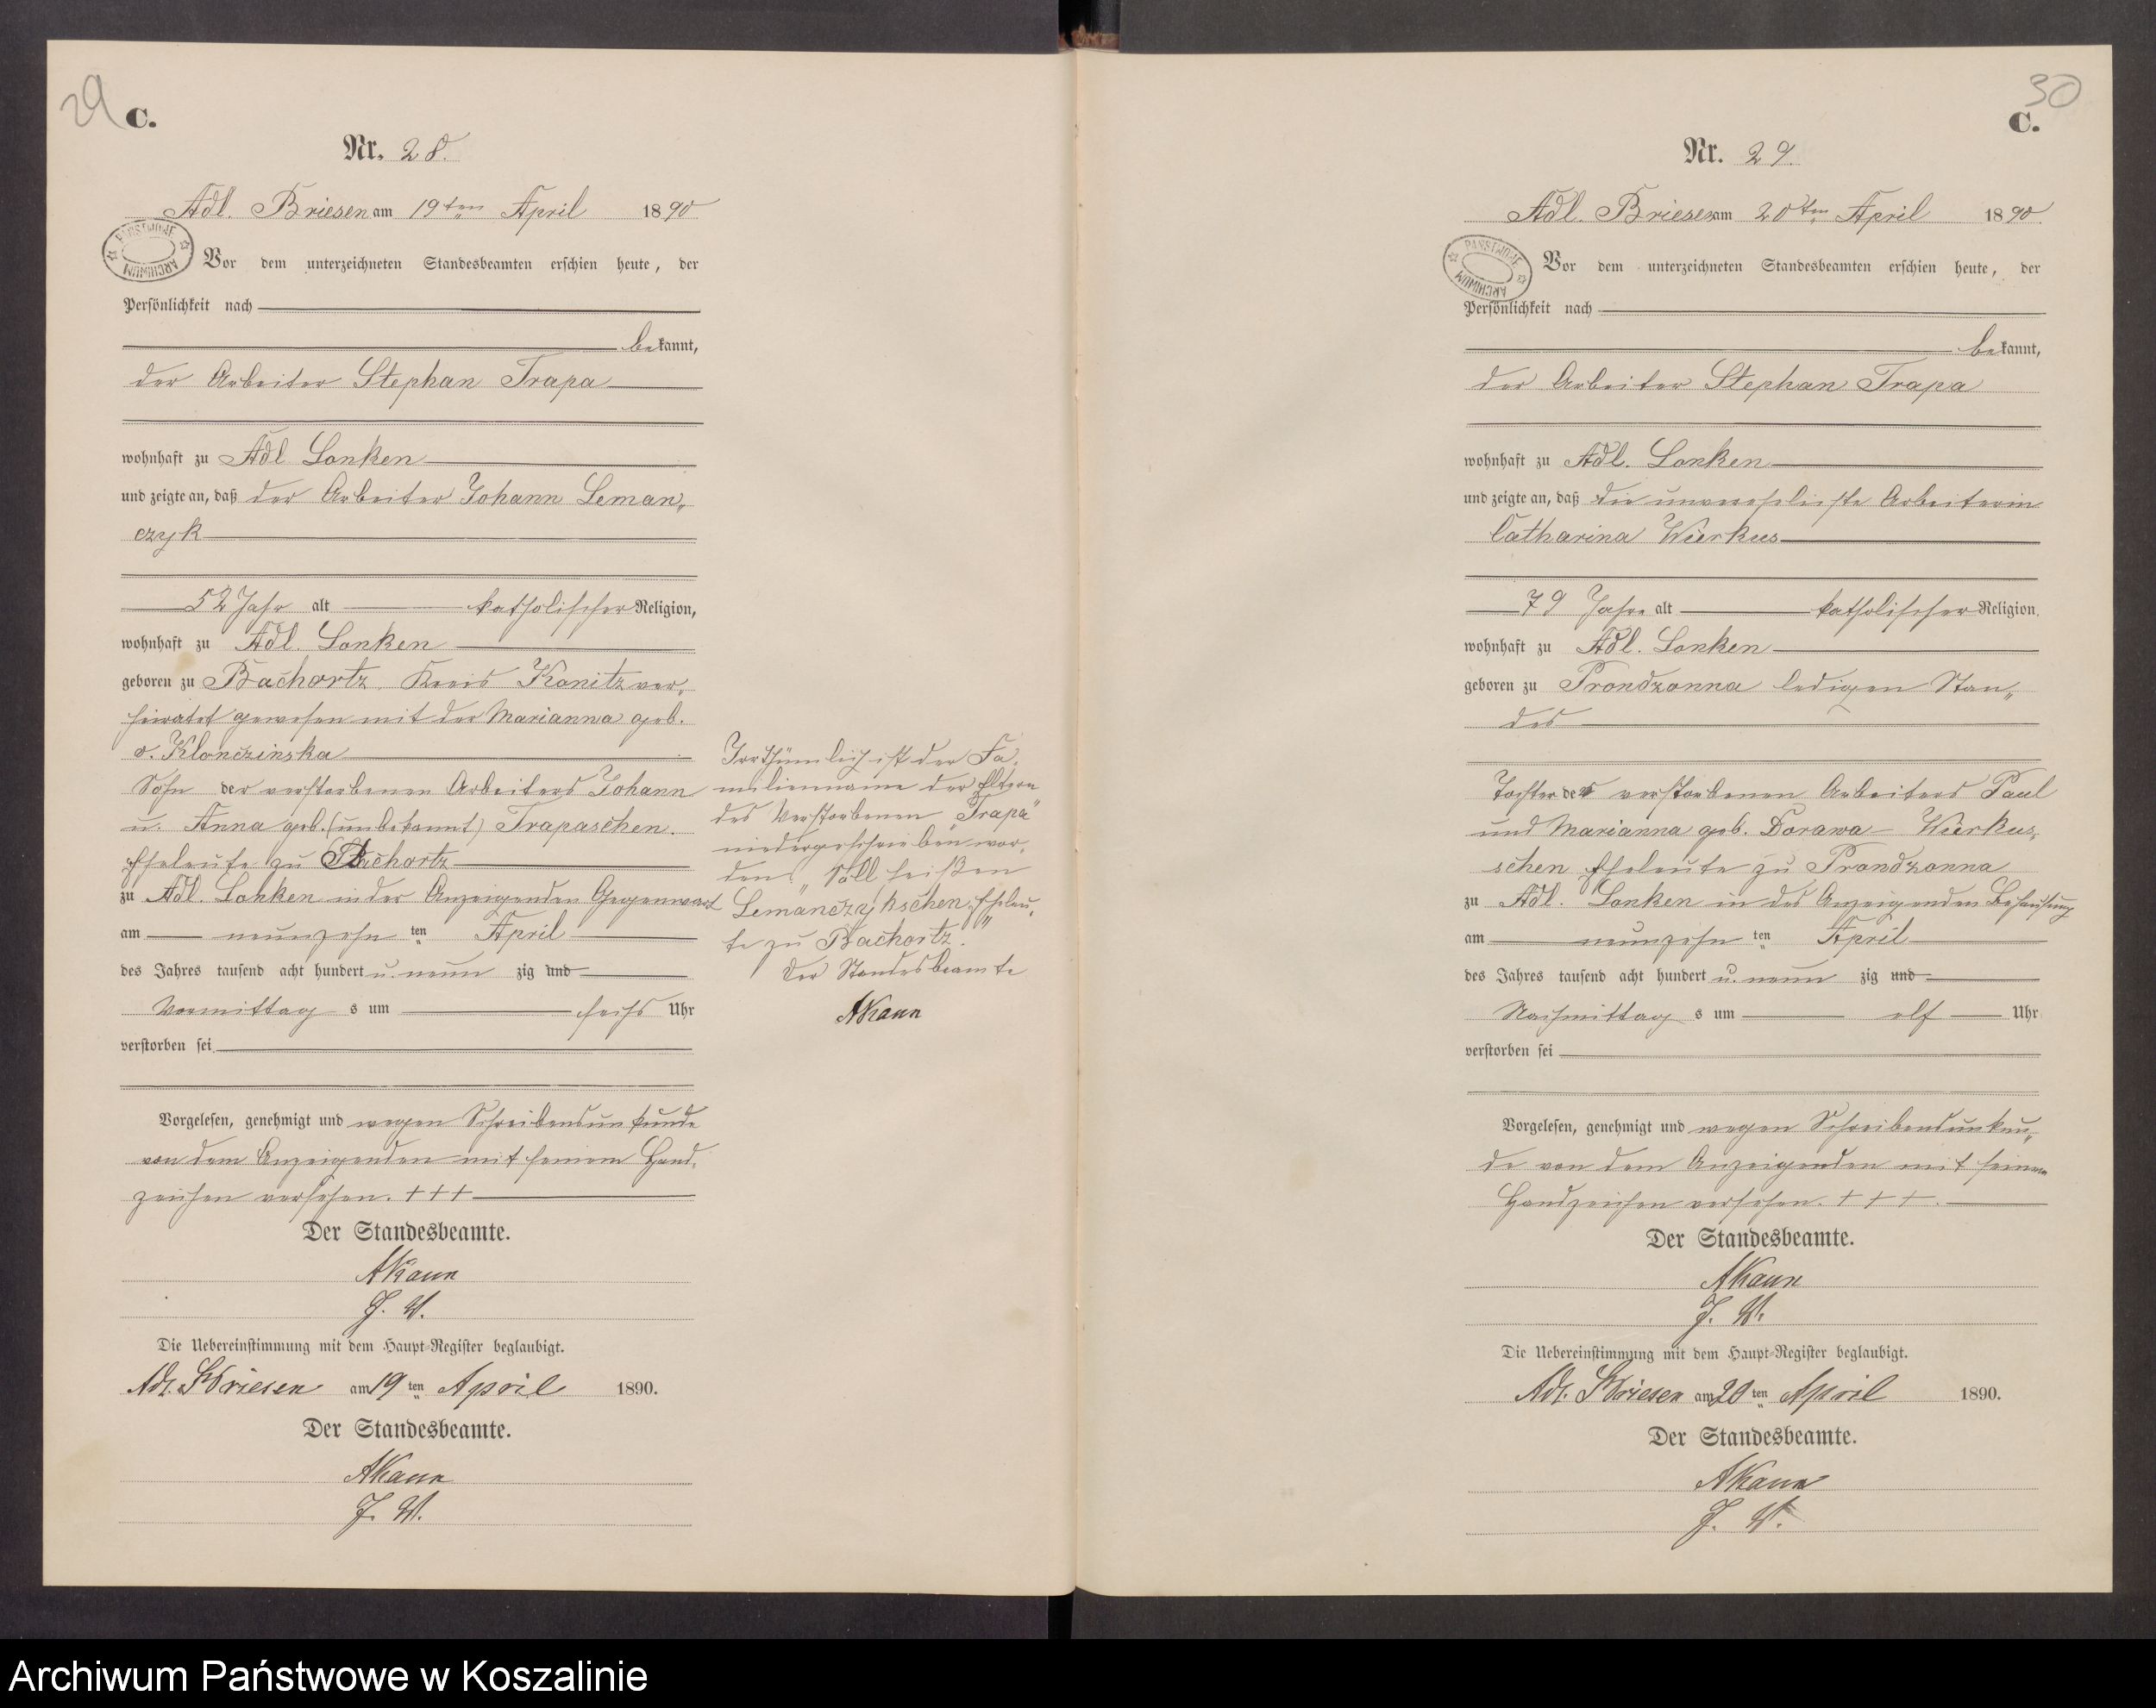 29
C.
Nr. 28.
Adl. Briesen am 19ten April 1890
PAŃSTWOWE ARCHIWUM
Vor dem unterzeichneten Standesbeamten erschien heute, der
Persönlichkeit nach
bekannt,
der Arbeiter Stephan Trapa
wohnhaft zu Adl Lonken
und zeigte an, daß der Arbeiter Johann Leman„
czyk
52 Jahr alt katholischer Religion,
wohnhaft zu Adl. Lonken
geboren zu Bachortz, Kreis Konitz ver„
heiratet gewesen mit der Marianna geb.
v. Klonczinska
Sohn der verstorbenen Arbeiters Johann
u. Anna geb. (unbekannt) Trapaschen.
Eheleute zu Bachortz
zu Adl. Lonken in der Anzeigenden Gegenwart
am neunzehn ten April
des Jahres tausend acht hundert u. neun zig und
Vormittag s um sechs Uhr
verstorben sei
Vorgelesen, genehmigt und wegen Schreibensunkunde
von dem Anzeigenden mit seinem Hand„
zeichen versehen. +++
Der Standesbeamte.
AKann
J. V.
Die Uebereinstimmung mit dem Haupt-Register beglaubigt.
Adl. Briesen am 19 ten April 1890.
Der Standesbeamte.
AKann
J. V.
Irrthümlich ist der Fa„
milienname der Eltern
des Verstorbenen „Trapa"
niedergeschrieben wor„
den, „Soll heißen
Lemanczykschen Eheleu„
te zu Bachortz."
Der Standesbeamte
AKann
30
C.
Nr. 29.
Adl. Briesen am 20ten April 1890.
PAŃSTWOWE ARCHIWUM
Vor dem unterzeichneten Standesbeamten erschien heute, der
Persönlichkeit nach
bekannt,
der Arbeiter Stephan Trapa
wohnhaft zu Adl. Lonken
und zeigte an, daß die unverehelichte Arbeiterin
Catharina Wierkus
79 Jahre alt katholischer Religion,
wohnhaft zu Adl. Lonken
geboren zu Prondzonna ledigen Stan„
des
Tochter des verstorbenen Arbeiters Paul
und Marianna geb. Dorawa - Wierkus„
schen Eheleute zu Prondzonna
zu Adl. Lonken in des Anzeigenden Behausung
am neunzehn ten April
des Jahres tausend acht hundert u. neun zig und
Nachmittag s um elf Uhr
verstorben sei
Vorgelesen, genehmigt und wegen Schreibensunkun„
de von dem Anzeigenden mit seinem
Handzeichen versehen. +++.
Der Standesbeamte.
AKann
J. V.
Die Uebereinstimmung mit dem Haupt-Register beglaubigt.
Adl. Briesen am 20 ten April 1890.
Der Standesbeamte.
AKann
J. V.
Archiwum Państwowe w Koszalinie